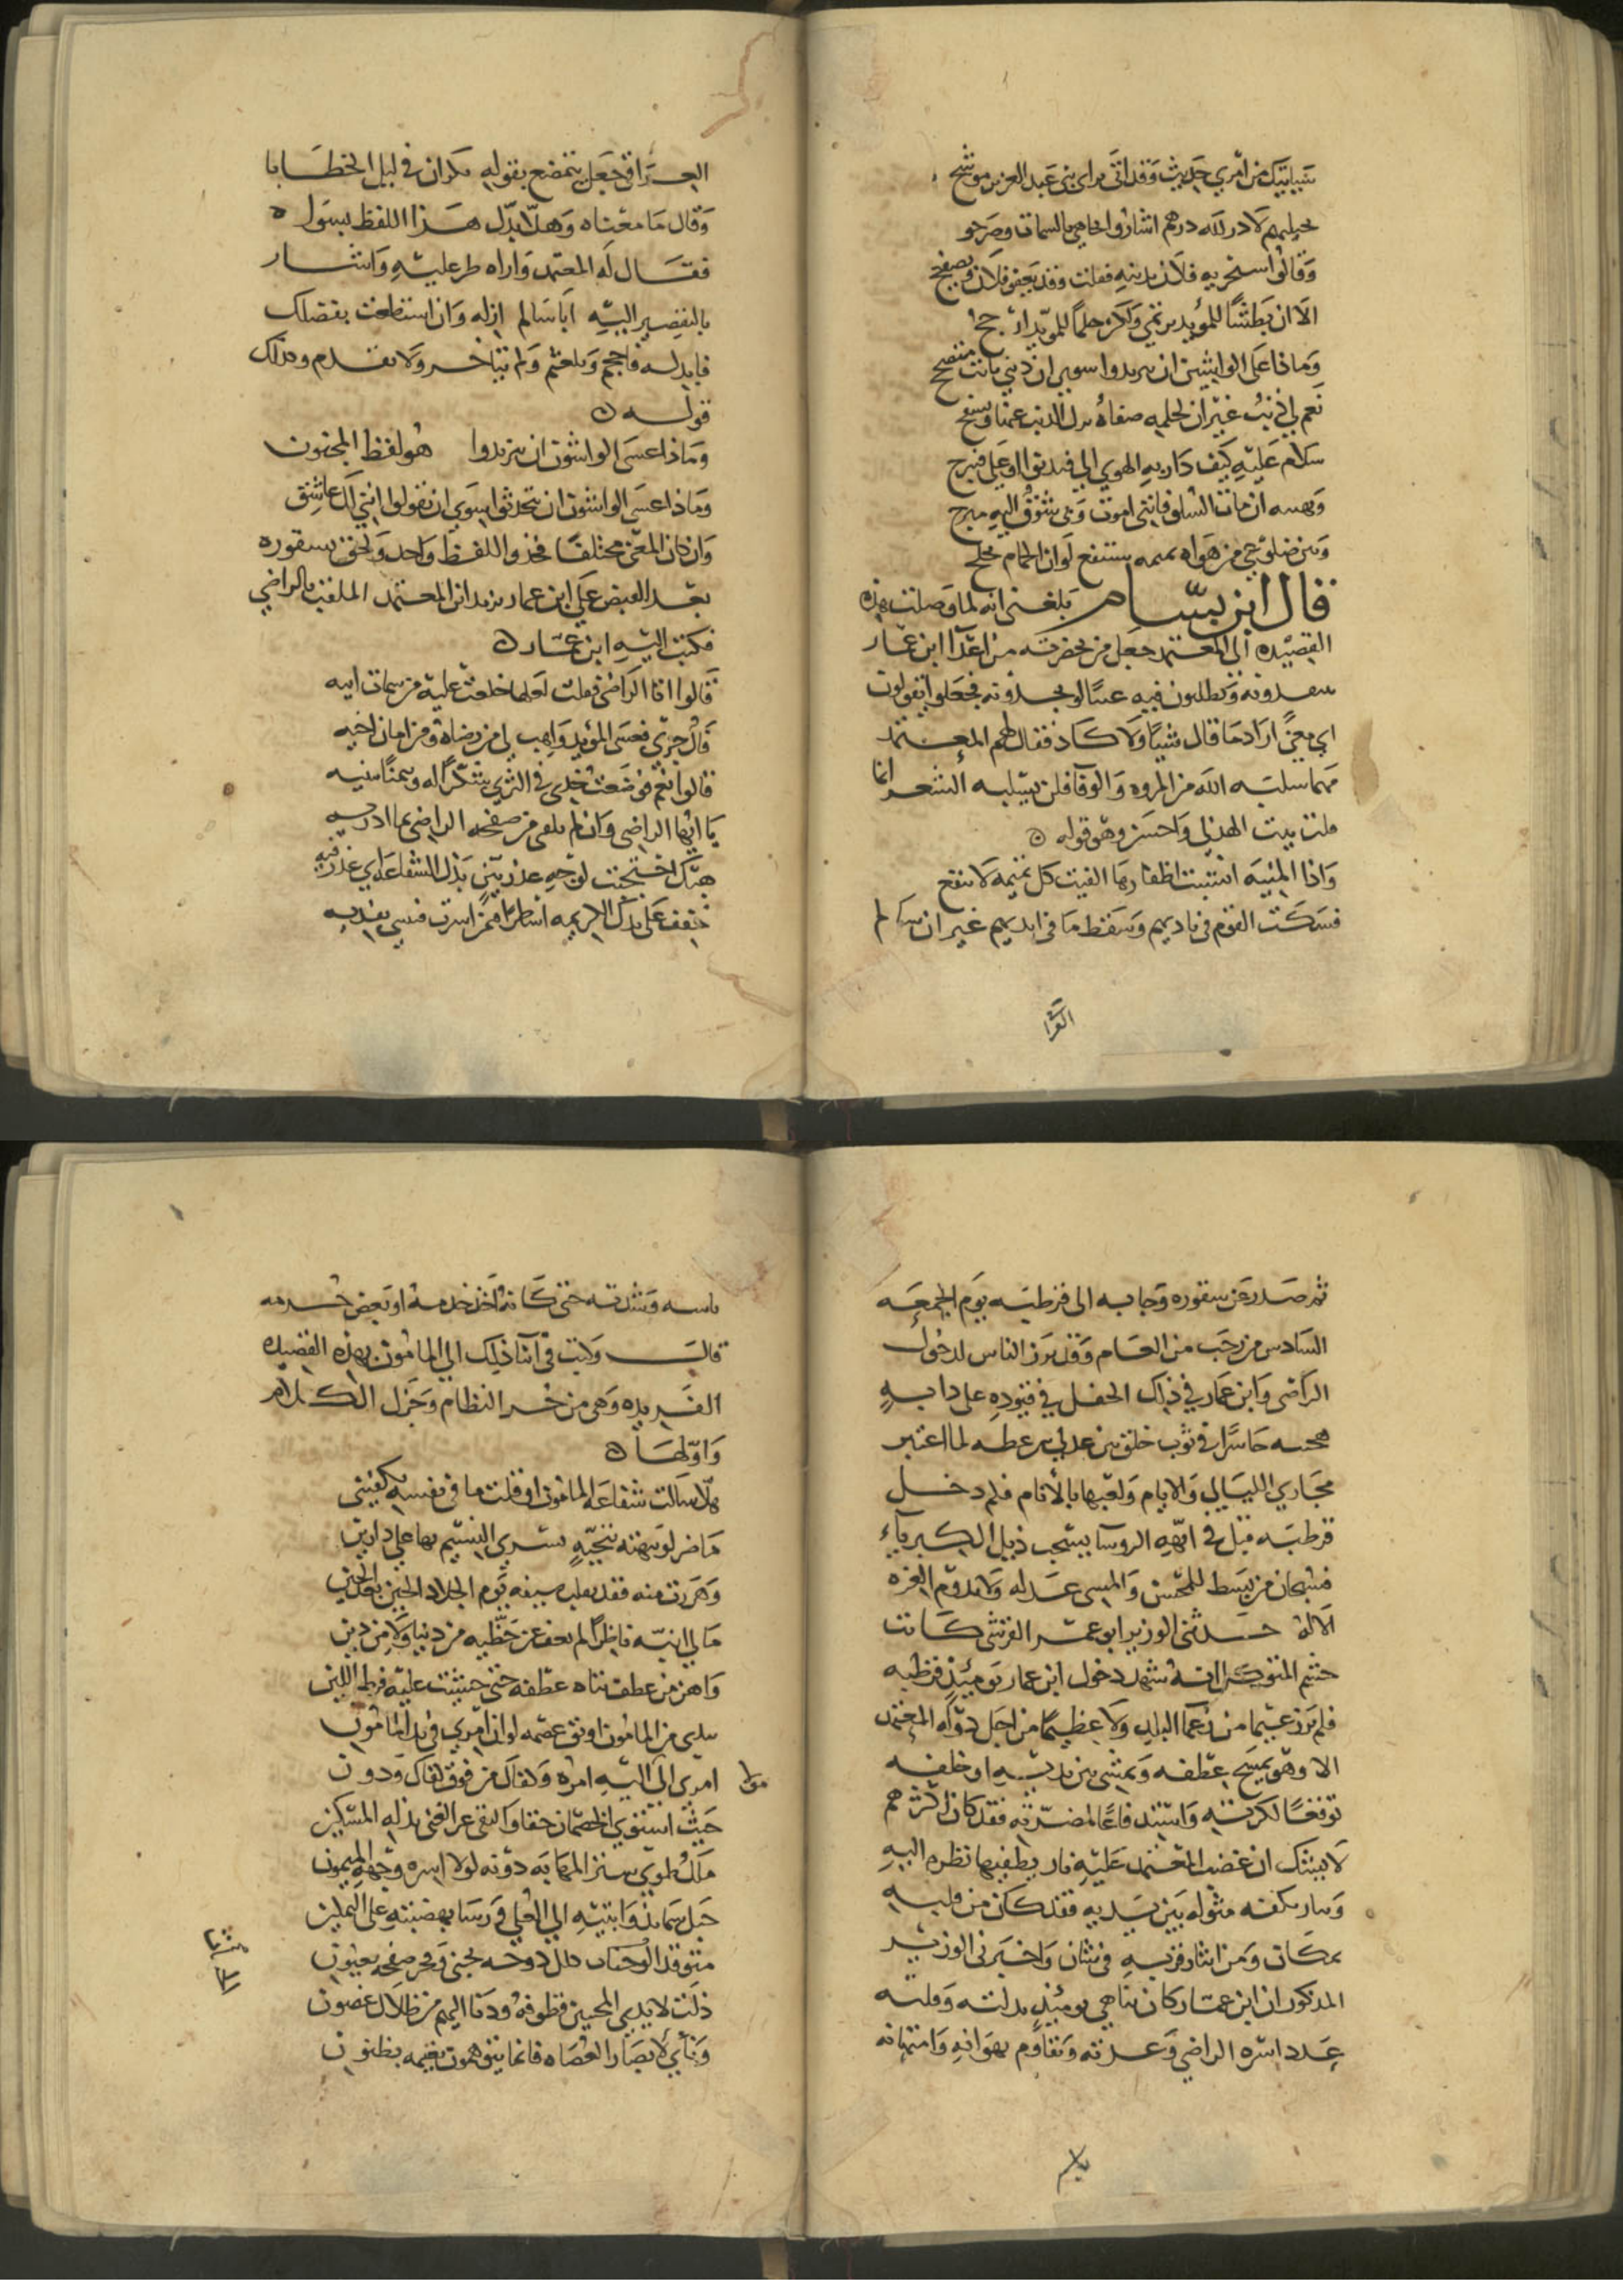 سيأتيك من أمري حديث وقد أتى براي بني عبد العزيز موشح
تخيلهم لا در لله درهم اشاروا تجاهي بالسمات وصرحو
وقالوا سيجزيه فلان بذنبه فقلت وقد يعفو فلان ويصفح
الا ان بطشا للمؤيد يرتمي ولكن حلما للمؤيد ارجح
وماذا على الواشين ان يزيدوا سوى ان ذنبي ثابت متصح
نعم لي ذنب غير ان لحلمه صفاة يزل الذنب عنها ويسفح
سلام عليه كيف دار به الهوى الي فيدنو او علي فينزح
ويهنيه ان مات السلو فانني اموت ولي شوق اليه مبرح
وبين ضلوعي من هواه تميمه ستنفع لو ان الحمام مجلح
قال ابن بسام بلغني انه لما وصلت هذه
القصيده الى المعتمد جعل من بحضرته من اعدا ابن عمار
ينتقدونه ويطلبون فيه عيبا لو يجدونه فجعلوا يقولون
اي معنى اراد ما قال شيا ولا كاد فقال لهم المعتمد
مهما سلبه الله من المروه والوفا فلن يسلبه الشعر انما
قلب بيت الهذلي واحسن وهو قوله
واذا المنيه انشبت اظفارها الفيت كل تميمه لا تنفع
فسكت القوم في ناديهم وسقط ما في ايديهم غير ان سالم
العرا
العراقي جعل يتمضغ بقوله يكران في ليل الخطايا
وقال ما معناه وهلا بدل هذا اللفظ بسواه
فقال له المعتمد واراه طر عليه واشار
بالتقصير اليه ابا سالم ازله وان استطعت بفضلك
فابدله فاحجم وتلعثم ولم يتاخر ولا تقدم وكذلك
قوله
وماذا عسى الواشون ان يزيدوا هو لفظ المجنون
وماذا عسى الواشون ان يتحدثوا سوى ان يقولوا انني لك عاشق
وان كان المعنى مختلفا فحذو اللفظ واحد ولحق بسقوره
بعد القبض على ابن عمار يزيد ابن المعتمد الملقب بالراضي
فكتب اليه ابن عمار
قالوا اتا الراضي فقلت لعلها خلعت عليه من سمات ابيه
فال جرى فعسى المؤيد واهب لي من رضاه ومن امان اخيه
قالوا نعم فوضعت خدي في الثرى شكرا له وتيمنا ببنيه
يا ايها الراضي وان لم يلقني من صفحه الراضي بما ادريه
هبك احتجبت لوجه عذر بين بذل الشفاعه اي عذر فيه
خفف على يدك الكريمه اسطرا فمن اسرت فنسي بفديه
ثم صدر عن سقوره وجا به الى قرطبه يوم الجمعه
السادس من رجب من العام وقد برز الناس لدخول
الراضي وابن عمار في ذلك الحفل في قيوده على دابه
هجينه حاسرا في ثوب خلق بين عدلي لما اعتبر
مجاري الليالي والايام ولعبها بالانام فلم دخل
قرطبه قبل في ابهه الروسا يسحب ذيل الكبرياء
فسبحان من يبسط للمحسن والمسي عدله ولا تدوم العزه
الا له حدثني الوزير ابو عمر القرشي كانت
حشم المتوكل انه شهد دخول ابن عمار يومئذ قرطبه
فلم نرز عيما من زعما البلد ولا عظيما من اجل دوله المعتمد
الا وهو يمسح عطفه ويمشي بين يديه او خلفه
توقعا لكرته واستدفاعا لمضرته فقد كان اكثرهم
لا يشك ان غضب المعتمد عليه نار يطفيها نظره اليه
وسار يكفه مثوله بين يديه فقد كان من قلبه
بمكان ومن ايثار قربه في شان واخبرني الوزير
المذكور ان ابن عمار كان تناهي يومئذ بذلته وقلته
عدد اسره الراضي وعدته وتقاوم بهوانه وامتهانه
باسه وشدته حتى كانه احد خدمه او بعض حشمه
قال وكتب في اثنا ذلك الى المامون بهذه القصيده
الفريده وهي من حر النظام وجزل الكلام
واولها
هلا سالت شفاعه المامون او قلت ما في نفسه يكفيني
ما ضر لو نبهته بتحيه يسري النسيم بها على دارين
وهززت منه فقد يقلب سيفه يوم الجلاد الحين بعد الحين
ما لي انبه ناظرا لم يعف عن حظيه من دنيا ولا من دين
واهز من عطف تناه عطفه حتى خشيت عليه فرط اللين
بيدي من المامون اوثق عصمه لو ان امري في يد المامون
امري الى اليه امره وكفاك من فوق كفاك ودون
حيث استوى الخصمان حقا واكتفى عز الغني بذله المسكين
ملك طوى ستر المهابه دونه لولا اسره وجهه الميمون
جبل سما بذوابتيه الى العلى ورسا بهضبته على التمكين
متوقد الوجنات ظلل دوحه لجنى وفجر صفحه بعيون
ذلت لايدي المجتنين قطوفه ودنا اليهم من ظلال غصون
وناى لابصار العصاه فانما يتوهمون نعيمه بظنون